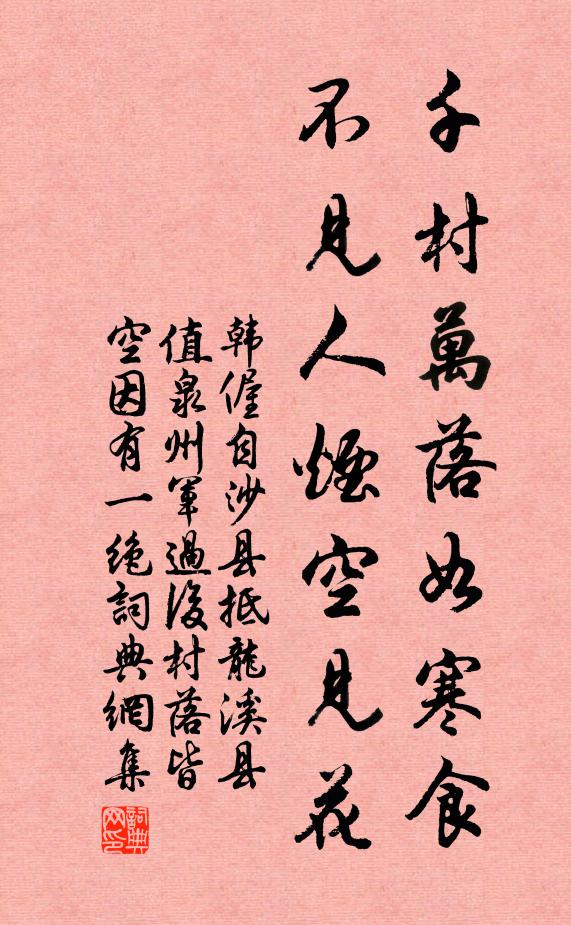 千村萬落如寒食
不見人煙空見花
韩偓自沙县抵龍溪县
值泉州軍過後村落皆
空因有一绝詞典網集
詞典网印